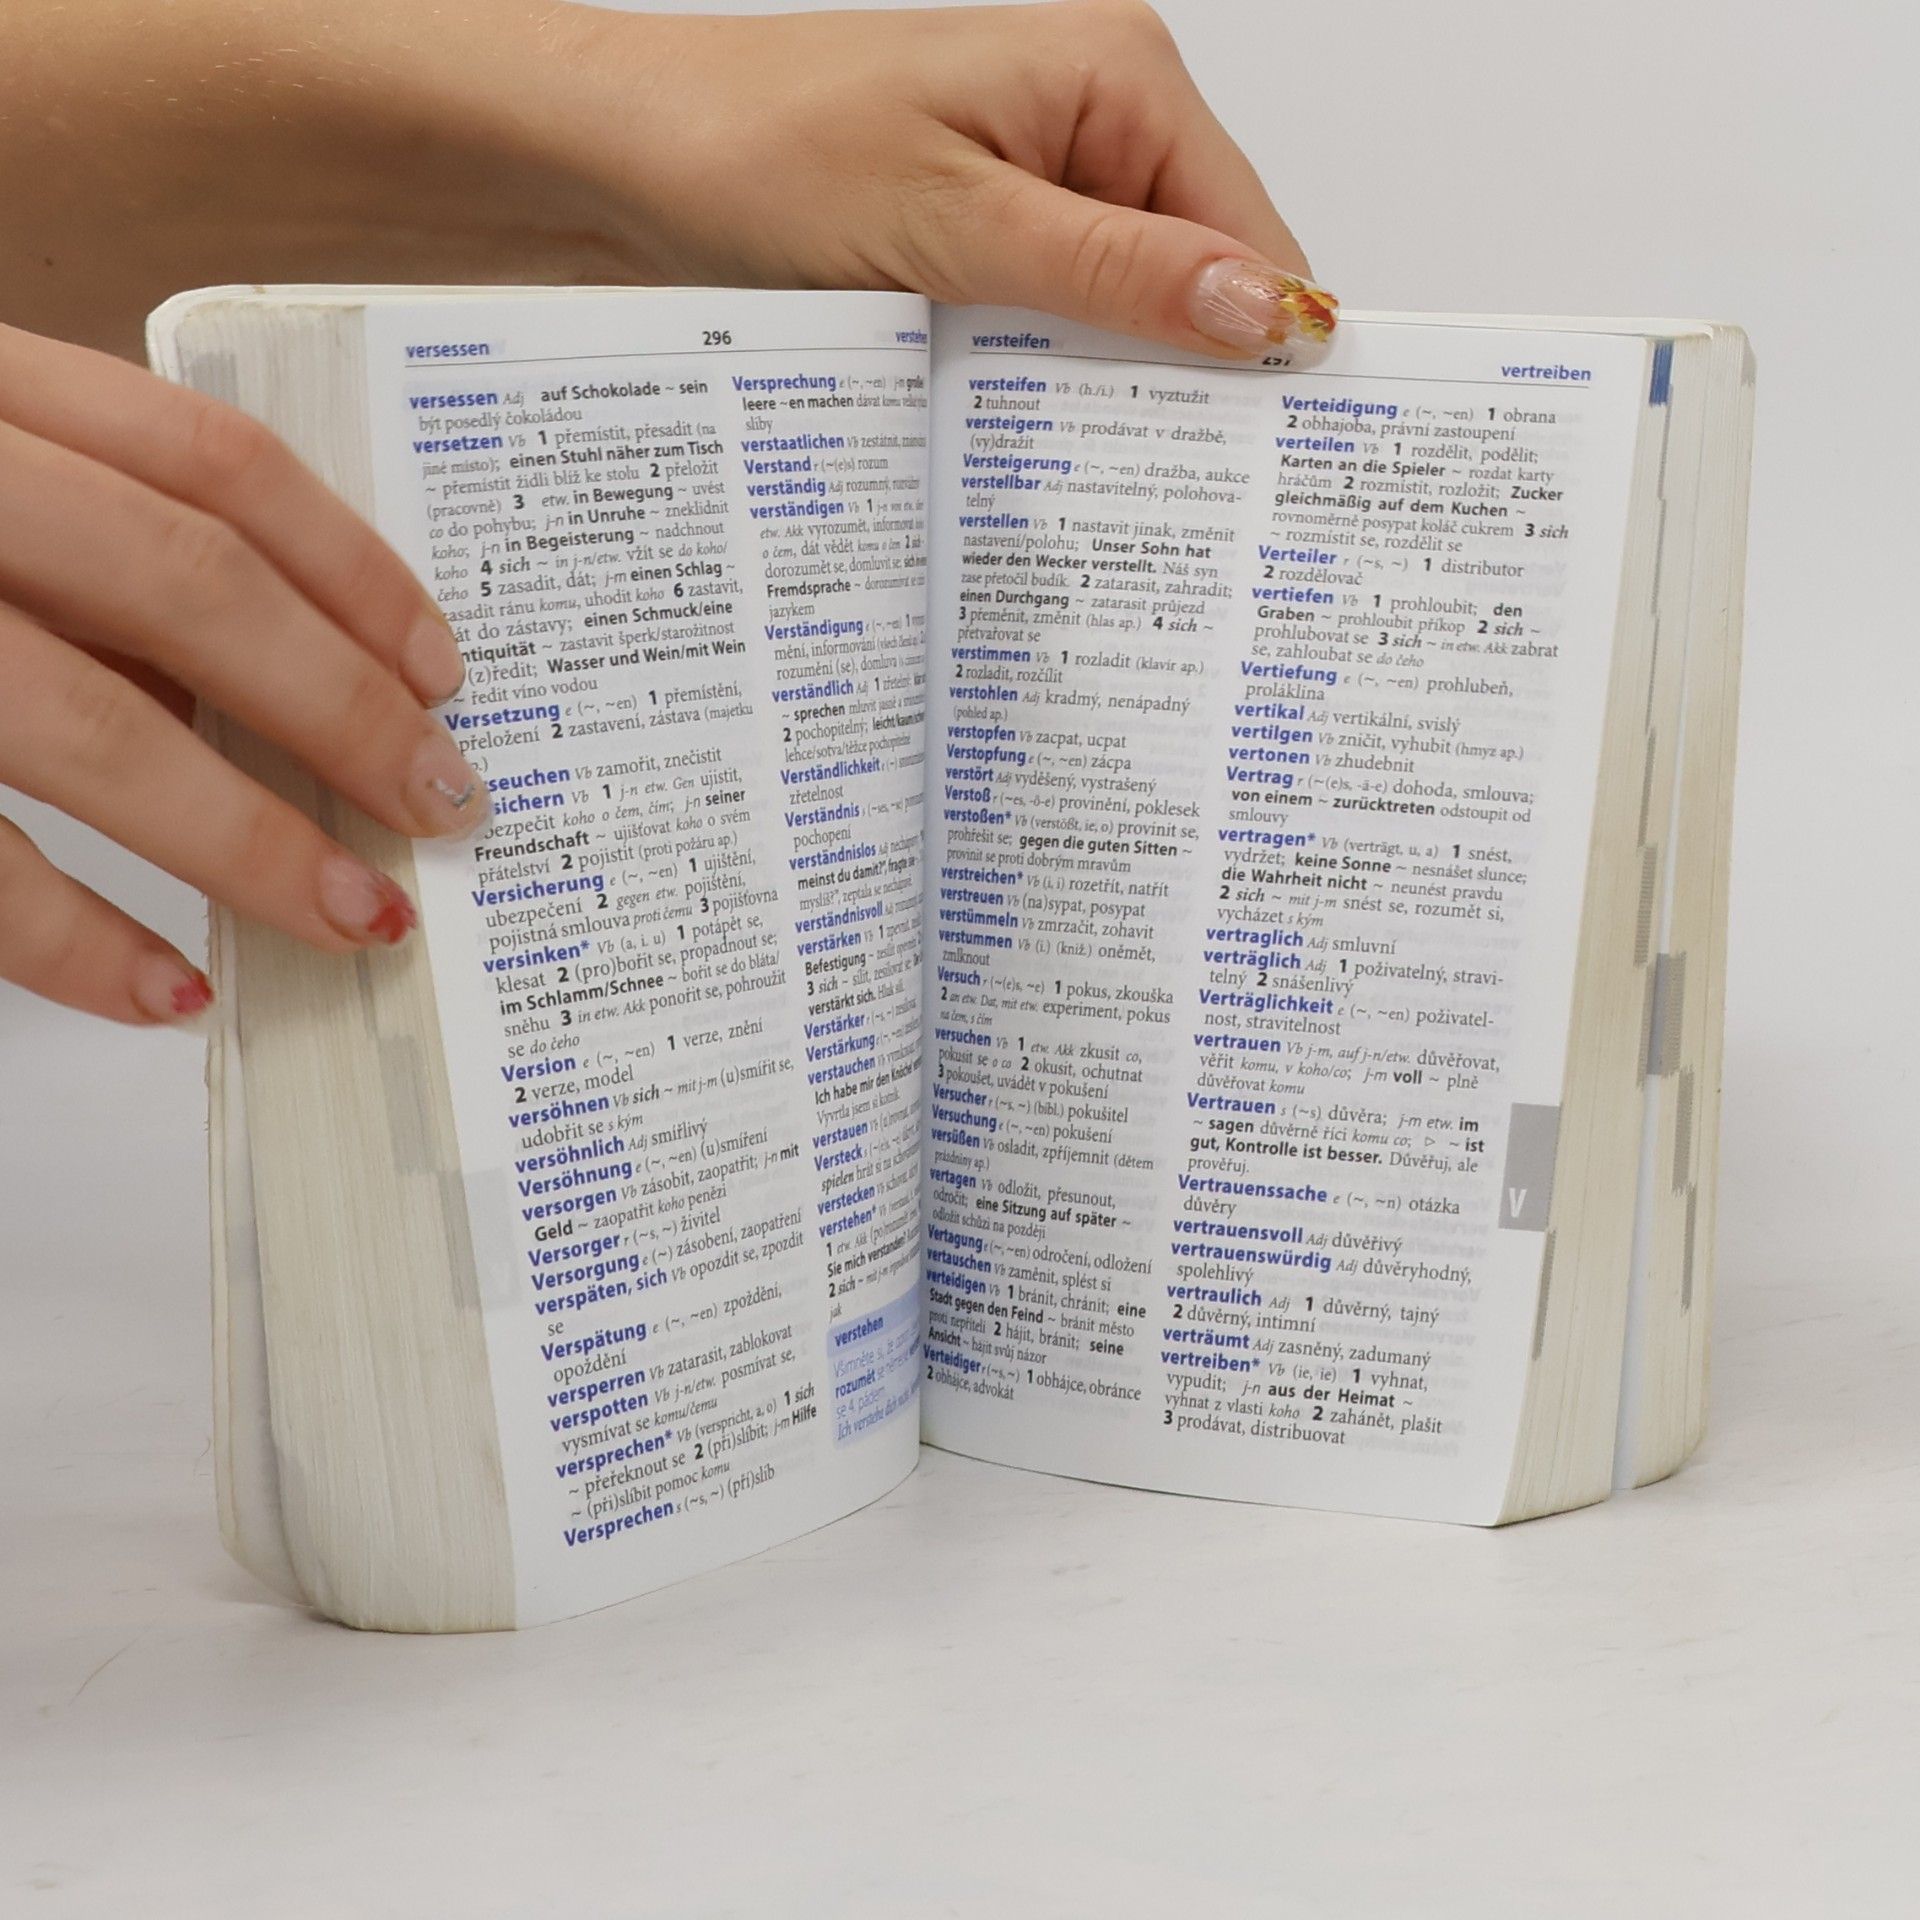 versessen 296 verstehen
versessen Adj auf Schokolade ~ sein
být posedlý čokoládou
versetzen Vb 1 přemístit, přesadit (na
jiné místo); einen Stuhl näher zum Tisch
~ přemístit židli blíž ke stolu 2 přeložit
(pracovně) 3 etw. in Bewegung ~ uvést
co do pohybu; j-n in Unruhe ~ zneklidnit
koho; j-n in Begeisterung ~ nadchnout
koho 4 sich ~ in j-n/etw. vžít se do koho/
čeho 5 zasadit, dát; j-m einen Schlag ~
zasadit ránu komu, uhodit koho 6 zastavit,
át do zástavy; einen Schmuck/eine
ntiquität ~ zastavit šperk/starožitnost
(z)ředit; Wasser und Wein/mit Wein
~ ředit víno vodou
Versetzung e (~, ~en) 1 přemístění,
přeložení 2 zastavení, zástava (majetku
p.)
seuchen Vb zamořit, znečistit
sichern Vb 1 j-n etw. Gen ujistit,
bezpečit koho o čem, čím; j-n seiner
Freundschaft ~ ujišťovat koho o svém
přátelství 2 pojistit (proti požáru ap.)
Versicherung e (~, ~en) 1 ujištění,
ubezpečení 2 gegen etw. pojištění,
pojistná smlouva proti čemu 3 pojišťovna
versinken* Vb (a, i. u) 1 potápět se,
klesat 2 (pro)bořit se, propadnout se;
im Schlamm/Schnee ~ bořit se do bláta/
sněhu 3 in etw. Akk ponořit se, pohroužit
se do čeho
Version e (~, ~en) 1 verze, znění
2 verze, model
versöhnen Vb sich ~ mit j-m (u)smířit se,
udobřit se s kým
versöhnlich Adj smířlivý
Versöhnung e (~, ~en) (u)smíření
versorgen Vb zásobit, zaopatřit; j-n mit
Geld ~ zaopatřit koho penězi
Versorger r (~s, ~) živitel
Versorgung e (~) zásobení, zaopatření
verspäten, sich Vb opozdit se, zpozdit
se
Verspätung e (~, ~en) zpoždění,
opoždění
versperren Vb zatarasit, zablokovat
verspotten Vb j-n/etw. posmívat se,
vysmívat se komu/čemu
versprechen* Vb (verspricht, a, o) 1 sich
~ přeřeknout se 2 (při)slíbit; j-m Hilfe
~ (při)slíbit pomoc komu
Versprechen s (~s, ~) (pří)slib
Versprechung e (~, ~en) j-m große
leere ~en machen dávat komu
sliby
verstaatlichen Vb zestátnit,
Verstand r (~(e)s) rozum
verständig Adj rozumný,
verständigen Vb 1 j-n von etw.
etw. Akk vyrozumět, informovat
o čem, dát vědět komu o čem 2 sich
dorozumět se, domluvit se;
Fremdsprache ~ dorozumívat se
jazykem
Verständigung e (~, ~en) 1
mění, informování
rozumění (se), domluva
verständlich Adj 1 zřetelný;
~ sprechen mluvit jasně a
2 pochopitelný; leicht/kaum
lehce/sotva/těžce pochopitelné
Verständlichkeit e (~)
zřetelnost
Verständnis s (~ses, ~se)
pochopení
verständnislos Adj
meinst du damit?", fragte sie
myslíš?", zeptala se nechápavě.
verständnisvoll Adj
verstärken Vb 1
Befestigung ~ zesílit
3 sich ~ sílit, zesilovat se
verstärkt sich. Hluk sílí.
Verstärker r (~s, ~)
Verstärkung e (~, ~en)
verstauchen Vb
Ich habe mir den Knöchel
Vyvrtla jsem si kotník.
verstauen Vb
Versteck s (~(e)s, ~e)
spielen hrát si na
verstecken Vb schovat,
verstehen* Vb
1 etw. Akk (po)rozumět
Sie mich verstanden?
2 sich ~ mit j-m
jak
verstehen
Všimněte si, že
rozumět se
se 4. pádem
Ich verstehe dich
versteifen 297 vertreiben
versteifen Vb (h./i.) 1 vyztužit
2 tuhnout
versteigern Vb prodávat v dražbě,
(vy)dražit
Versteigerung e (~, ~en) dražba, aukce
verstellbar Adj nastavitelný, polohova-
telný
verstellen Vb 1 nastavit jinak, změnit
nastavení/polohu; Unser Sohn hat
wieder den Wecker verstellt. Náš syn
zase přetočil budík. 2 zatarasit, zahradit;
einen Durchgang ~ zatarasit průjezd
3 přeměnit, změnit (hlas ap.) 4 sich ~
přetvařovat se
verstimmen Vb 1 rozladit (klavír ap.)
2 rozladit, rozčílit
verstohlen Adj kradmý, nenápadný
(pohled ap.)
verstopfen Vb zacpat, ucpat
Verstopfung e (~, ~en) zácpa
verstört Adj vyděšený, vystrašený
Verstoß r (~es, -ö-e) provinění, poklesek
verstoßen* Vb (verstößt, ie, o) provinit se,
prohřešit se; gegen die guten Sitten ~
provinit se proti dobrým mravům
verstreichen* Vb (i, i) rozetřít, natřít
verstreuen Vb (na)sypat, posypat
verstümmeln Vb zmrzačit, zohavit
verstummen Vb (i.) (kniž.) oněmět,
zmlknout
Versuch r (~(e)s, ~e) 1 pokus, zkouška
2 an etw. Dat, mit etw. experiment, pokus
na čem, s čím
versuchen Vb 1 etw. Akk zkusit co,
pokusit se o co 2 okusit, ochutnat
3 pokoušet, uvádět v pokušení
Versucher r (~s, ~) (bibl.) pokušitel
Versuchung e (~, ~en) pokušení
versüßen Vb osladit, zpříjemnit (dětem
prázdniny ap.)
vertagen Vb odložit, přesunout,
odročit; eine Sitzung auf später ~
odložit schůzi na později
Vertagung e (~, ~en) odročení, odložení
vertauschen Vb zaměnit, splést si
verteidigen Vb 1 bránit, chránit; eine
Stadt gegen den Feind ~ bránit město
proti nepříteli 2 hájit, bránit; seine
Ansicht ~ hájit svůj názor
Verteidiger r (~s, ~) 1 obhájce, obránce
2 obhájce, advokát
Verteidigung e (~, ~en) 1 obrana
2 obhajoba, právní zastoupení
verteilen Vb 1 rozdělit, podělit;
Karten an die Spieler ~ rozdat karty
hráčům 2 rozmístit, rozložit; Zucker
gleichmäßig auf dem Kuchen ~
rovnoměrně posypat koláč cukrem 3 sich
~ rozmístit se, rozdělit se
Verteiler r (~s, ~) 1 distributor
2 rozdělovač
vertiefen Vb 1 prohloubit; den
Graben ~ prohloubit příkop 2 sich ~
prohlubovat se 3 sich ~ in etw. Akk zabrat
se, zahloubat se do čeho
Vertiefung e (~, ~en) prohlubeň,
proláklina
vertikal Adj vertikální, svislý
vertilgen Vb zničit, vyhubit (hmyz ap.)
vertonen Vb zhudebnit
Vertrag r (~(e)s, -ä-e) dohoda, smlouva;
von einem ~ zurücktreten odstoupit od
smlouvy
vertragen* Vb (verträgt, u, a) 1 snést,
vydržet; keine Sonne ~ nesnášet slunce;
die Wahrheit nicht ~ neunést pravdu
2 sich ~ mit j-m snést se, rozumět si,
vycházet s kým
vertraglich Adj smluvní
verträglich Adj 1 poživatelný, stravi-
telný 2 snášenlivý
Verträglichkeit e (~, ~en) poživatel-
nost, stravitelnost
vertrauen Vb j-m, auf j-n/etw. důvěřovat,
věřit komu, v koho/co; j-m voll ~ plně
důvěřovat komu
Vertrauen s (~s) důvěra; j-m etw. im
~ sagen důvěrně říci komu co; ▷ ~ ist
gut, Kontrolle ist besser. Důvěřuj, ale
prověřuj.
Vertrauenssache e (~, ~n) otázka
důvěry
vertrauensvoll Adj důvěřivý
vertrauenswürdig Adj důvěryhodný,
spolehlivý
vertraulich Adj 1 důvěrný, tajný
2 důvěrný, intimní
verträumt Adj zasněný, zadumaný
vertreiben* Vb (ie, ie) 1 vyhnat,
vypudit; j-n aus der Heimat ~
vyhnat z vlasti koho 2 zahánět, plašit
3 prodávat, distribuovat
V